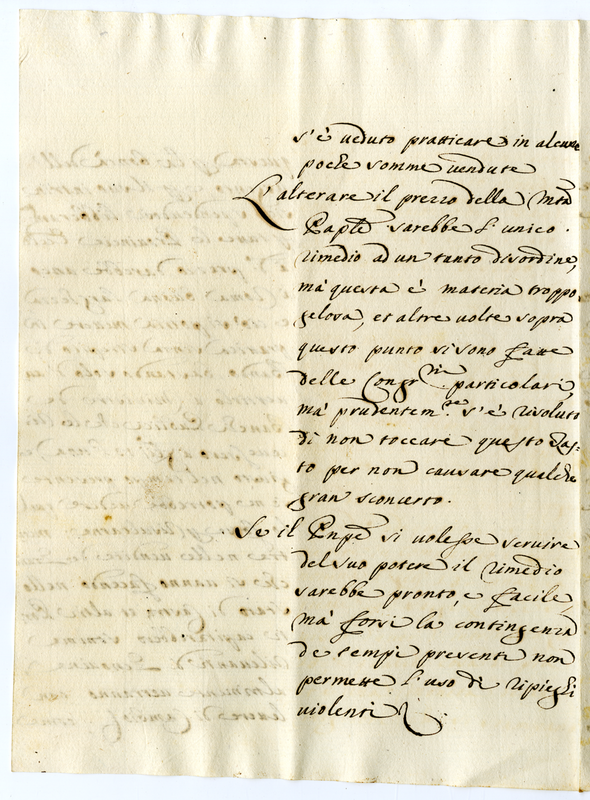 s'è veduto pratticare in alcune
poche somme vendute
L'alterare il prezzo della Mta
Paple sarebbe l'unico
rimedio ad un tanto disordine,
mà questa è materia troppo
gelosa, et altre volte sopra
questo punto si sono fatte
delle Congrni particolari,
mà prudentemte s'è risoluto
di non toccare questo Tas:
to per non causare qualche
gran sconcerto.
Se il Pnpe si volesse servire
del suo potere il rimedio
sarebbe pronto, e facile,
mà forsi la contingenza
de tempi presenti non
permette l'uso di ripieghi
violenti